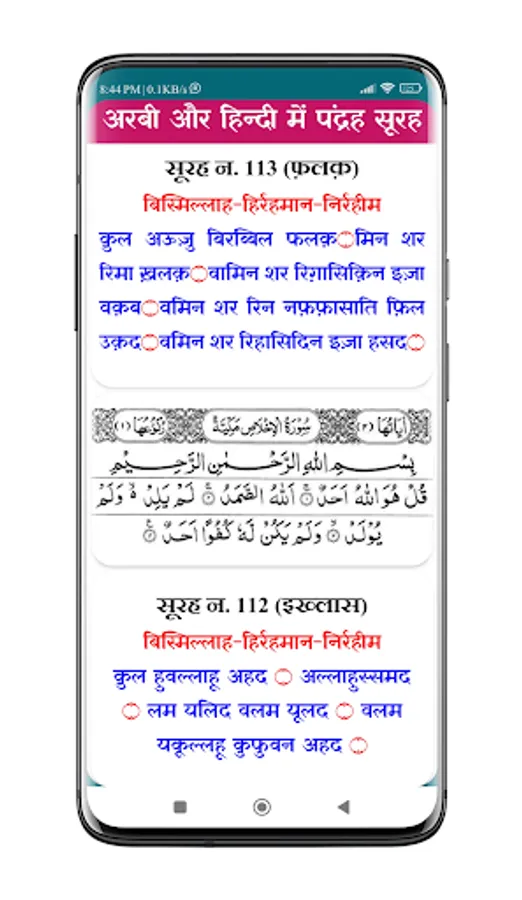 8:44 PM | 0.1KB/s
अरबी और हिन्दी में पंद्रह सूरह
सूरह न. 113 (फ़लक़)
बिस्मिल्लाह-हिर्रहमान-निर्रहीम
क़ुल अऊज़ु बिरब्बिल फलक़۝मिन शर
रिमा ख़लक़۝वामिन शर रिग़ासिक़िन इज़ा
वक़ब۝वमिन शर रिन नफ़फ़ासाति फ़िल
उक़द۝वमिन शर रिहासिदिन इज़ा हसद۝
اٰیَاتُهَا (٤) سُوْرَةُ الْاِخْلَاصِ مَكِّيَّةٌ رُكُوْعُهَا (١)
بِسْمِ اللهِ الرَّحْمٰنِ الرَّحِيْمِ
قُلْ هُوَ اللهُ اَحَدٌ ۝١ اَللهُ الصَّمَدُ ۝٢ لَمْ يَلِدْ ۙ وَلَمْ
يُوْلَدْ ۝٣ وَلَمْ يَكُنْ لَّهٗ كُفُوًا اَحَدٌ ۝٤
सूरह न. 112 (इख्लास)
बिस्मिल्लाह-हिर्रहमान-निर्रहीम
क़ुल हुवल्लाहू अहद ۝ अल्लाहुस्समद
۝ लम यलिद वलम यूलद ۝ वलम
यकूल्लहू कुफुवन अहद ۝